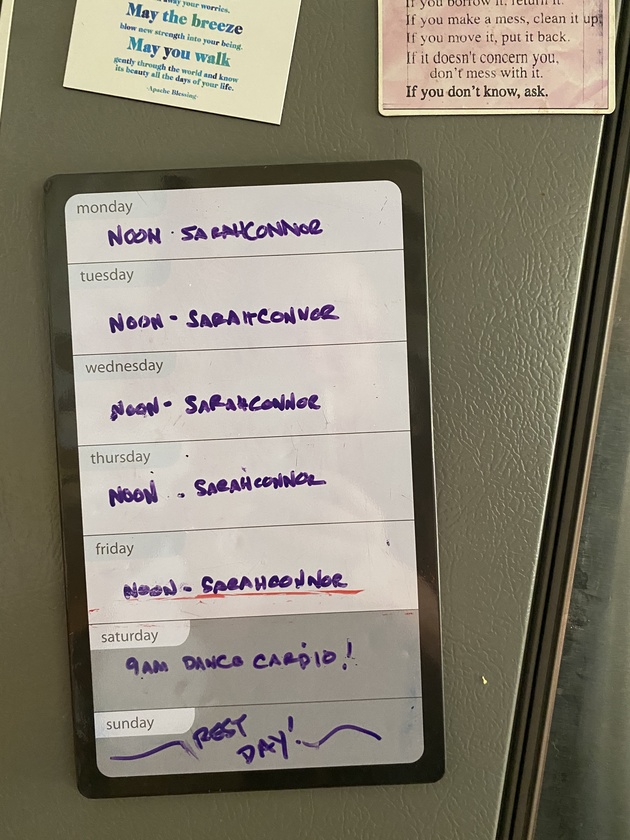 away your worries.
May the breeze
blow new strength into your being.
May you walk
gently through the world and know
its beauty all the days of your life.
-Apache Blessing-
If you borrow it, return it.
If you make a mess, clean it up.
If you move it, put it back.
If it doesn't concern you,
don't mess with it.
If you don't know, ask.
monday
NOON - SARAHCONNOR
tuesday
NOON - SARAHCONNOR
wednesday
NOON - SARAHCONNOR
thursday
NOON - SARAHCONNOR
friday
NOON - SARAHCONNOR
saturday
9AM DANCE CARDIO!
sunday
REST
DAY!